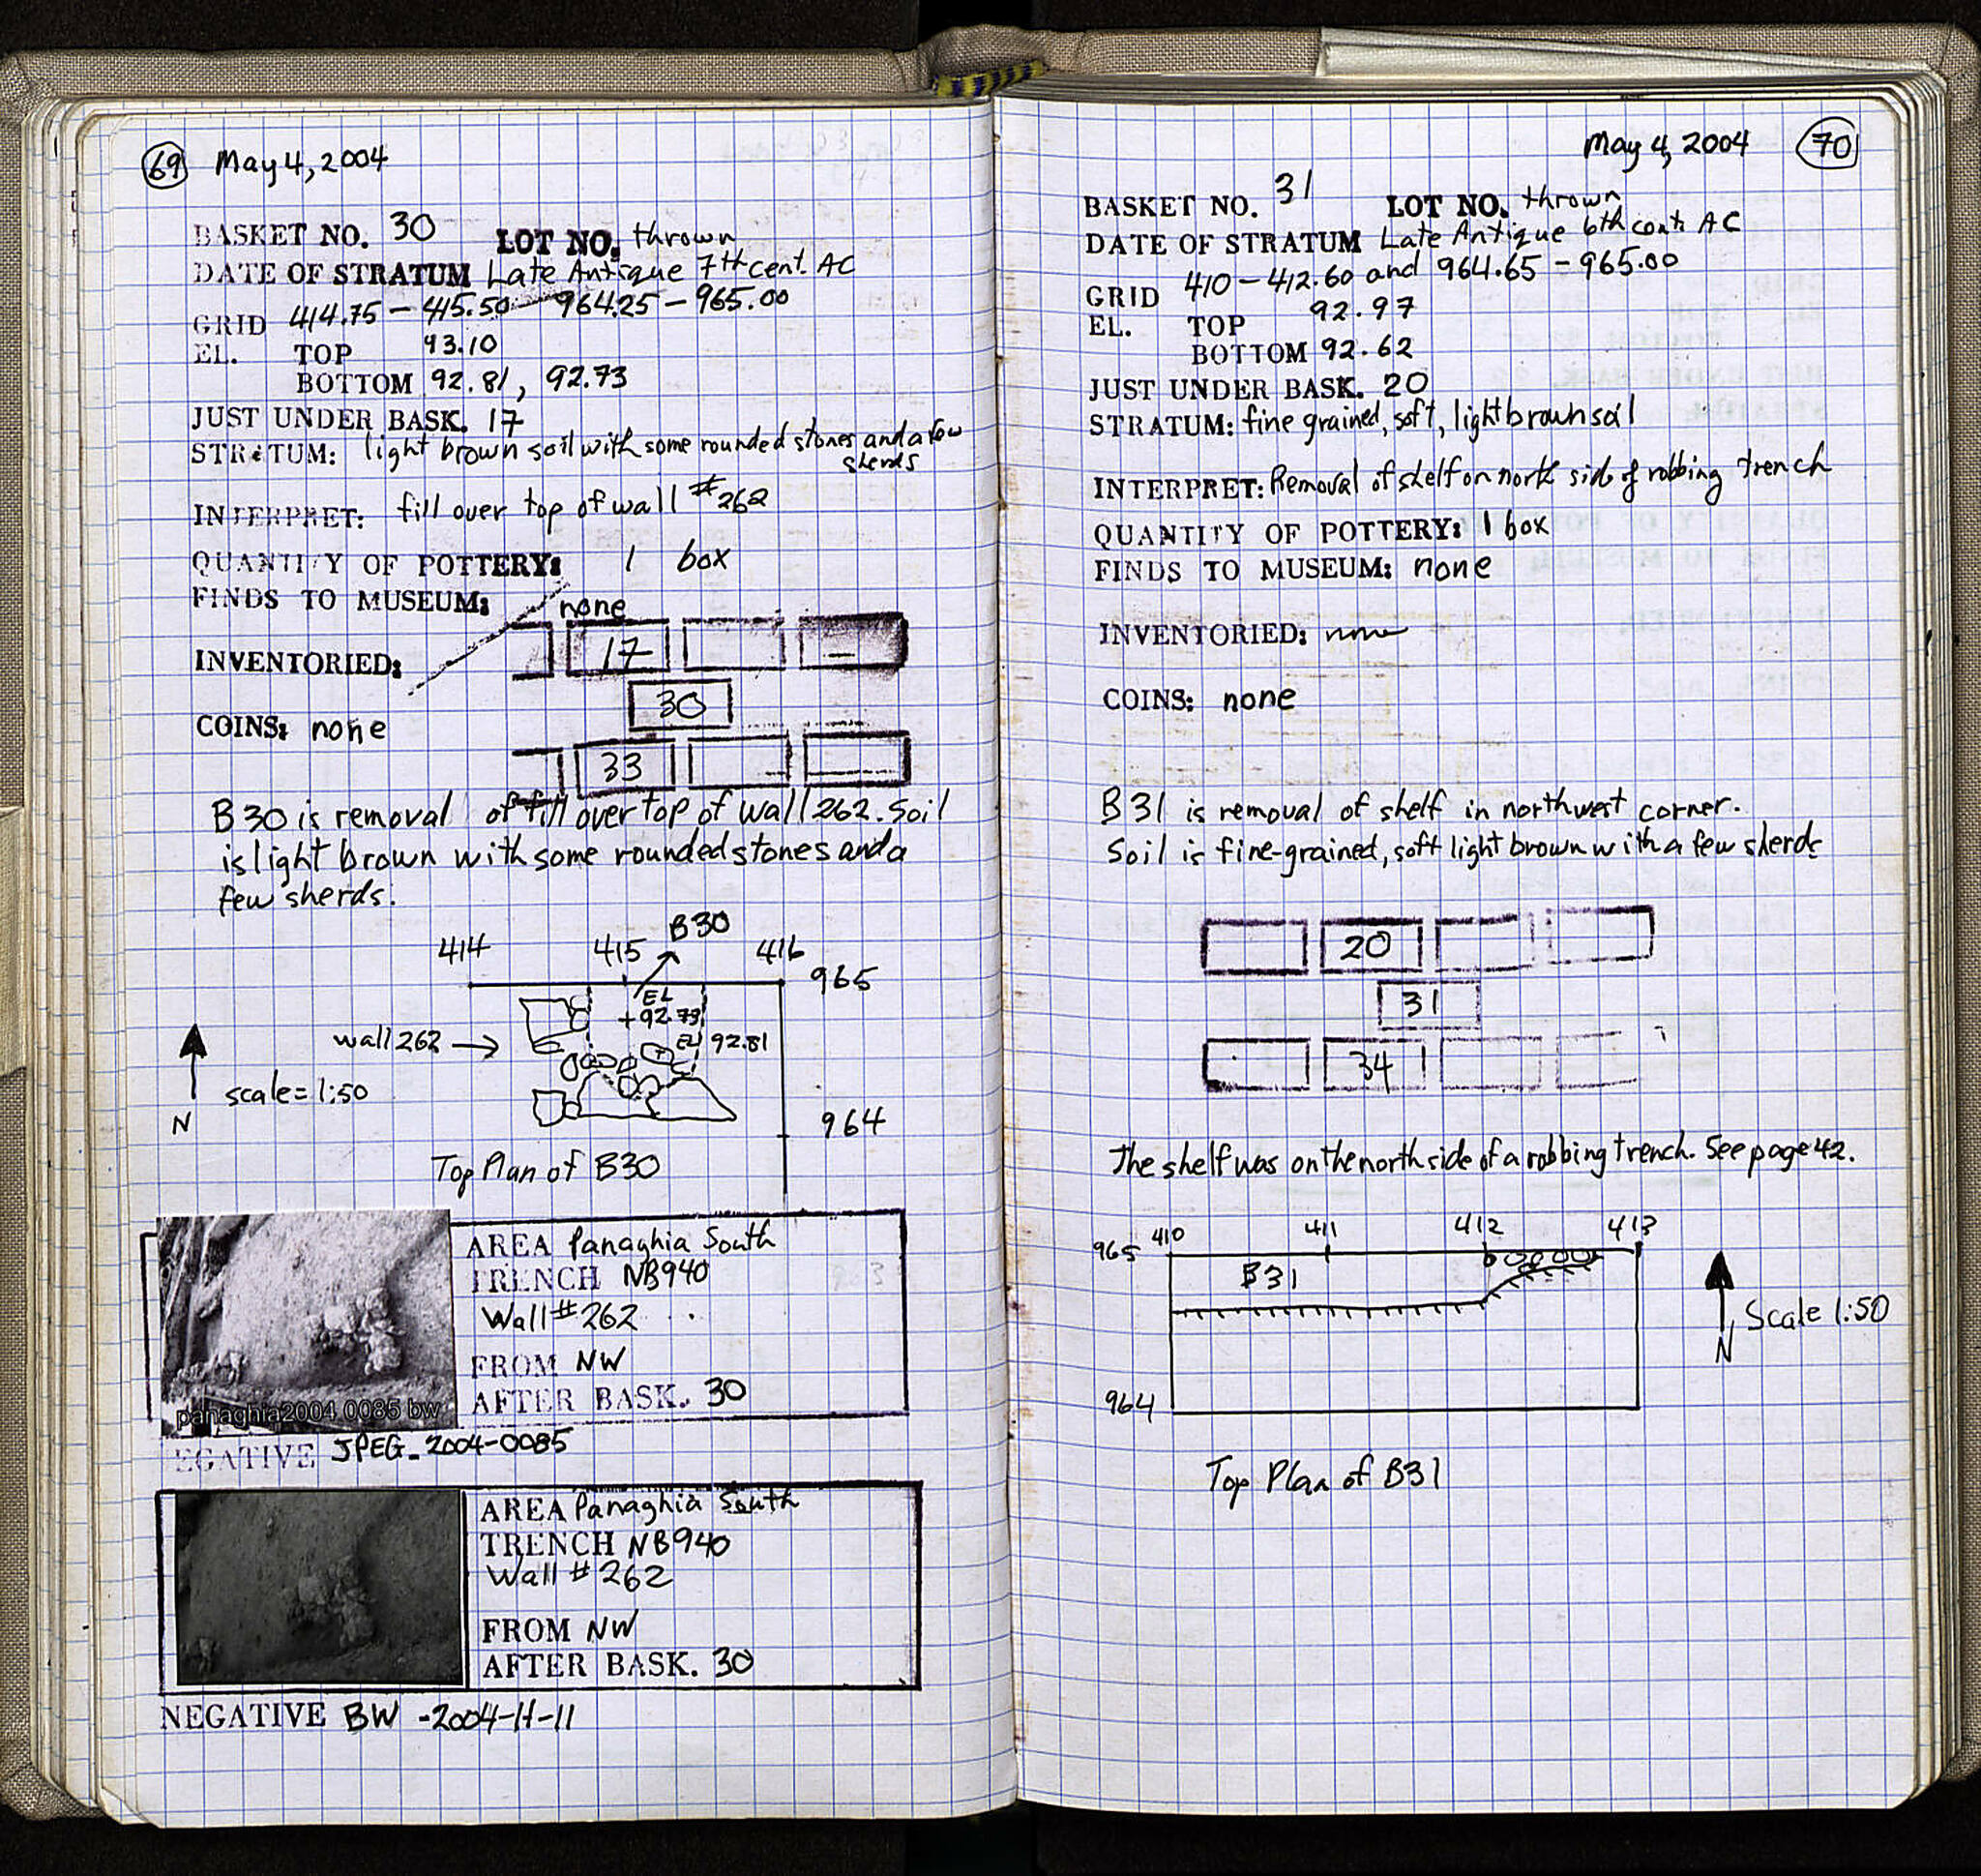 69 May 4, 2004
BASKET NO. 30 LOT NO. thrown
DATE OF STRATUM Late Antique 7th cent. AC
GRID 414.75 - 415.50 - 964.25 - 965.00
EL. TOP 93.10
BOTTOM 92.81, 92.73
JUST UNDER BASK. 17
STRATUM: light brown soil with some rounded stones and a few
sherds
INTERPRET: fill over top of wall #262
QUANTITY OF POTTERY: 1 box
FINDS TO MUSEUM: none
INVENTORIED:
17
30
COINS: none
33
B30 is removal of fill over top of wall 262. Soil
is light brown with some rounded stones and a
few sherds.
B30
414 415 416
965
EL
+92.73
wall 262 → EL 92.81
scale = 1:50
N
964
Top Plan of B30
AREA Panaghia South
TRENCH NB940
Wall #262
FROM NW
AFTER BASK. 30
panaghia2004 0085 bw
EGATIVE JPEG-2004-0085
AREA Panaghia South
TRENCH NB940
Wall #262
FROM NW
AFTER BASK. 30
NEGATIVE BW -2004-11-11
May 4, 2004 70
BASKET NO. 31 LOT NO. thrown
DATE OF STRATUM Late Antique 6th cent. AC
GRID 410-412.60 and 964.65-965.00
EL. TOP 92.97
BOTTOM 92.62
JUST UNDER BASK. 20
STRATUM: fine grained, soft, light brown soil
INTERPRET: Removal of shelf on north side of robbing trench
QUANTITY OF POTTERY: 1 box
FINDS TO MUSEUM: none
INVENTORIED: none
COINS: none
B31 is removal of shelf in northwest corner.
Soil is fine-grained, soft light brown with a few sherds
20
31
34
The shelf was on the north side of a robbing trench. See page 42.
410 411 412 413
965
B31
Scale 1:50
N
964
Top Plan of B31